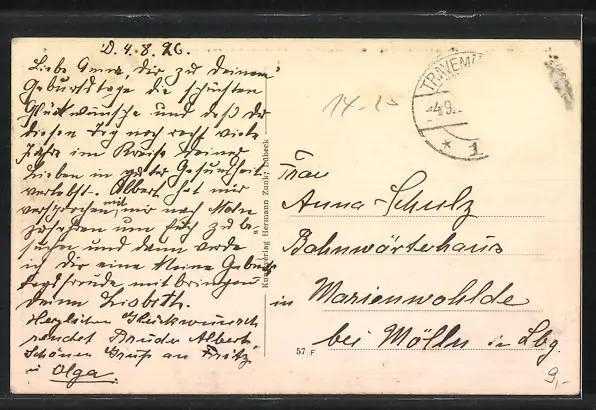 D. 4. 8. 26.
Liebe Anna Dir zu deinem
Geburtstage die schönsten
Glückwünsche und daß du
diesen Tag noch recht viele
Jahre im Kreise deiner
Lieben in guter Gesundheit
verlebst. Albert hat mir
versprochen, mit mir nach Mölln
zu fahren um Euch zu be-
suchen und dann werde
ich dir eine kleine Geburts
tagsfreude mitbringen
deine Lisbeth.
Herzlichen Glückwunsch
sendet Bruder Albert
Schönen Gruß an Fritz
u Olga.
Kunstverlag Hermann Zank, Lübeck
57 F
TRAVEM
1
14.-
Frau
Anna Schulz
Bahnwärterhaus
in Marienwohlde
bei Mölln in Lbg.
9,-